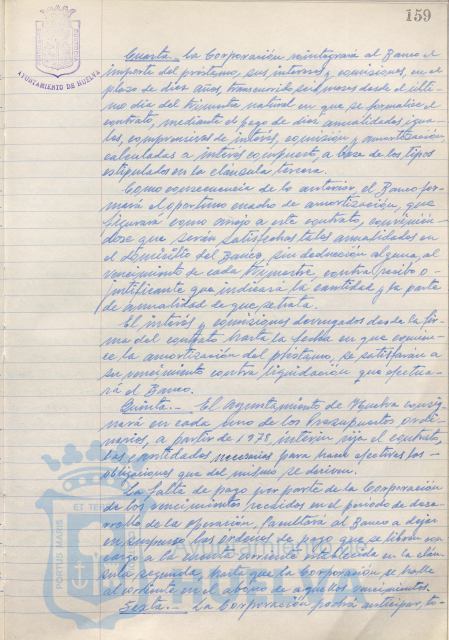 159
AYUNTAMIENTO DE HUELVA
Cuarta.- La Corporación reintegrará al Banco el
importe del préstamo, sus intereses y comisiones, en el
plazo de diez años, transcurrido seis meses desde el últi-
mo día del trimestre natural en que se formalice el
contrato, mediante el pago de diez anualidades igua-
les, comprensivas de interés, comisión y amortización,
calculadas a interés compuesto, a base de los tipos
estipulados en la cláusula tercera.
Como consecuencia de lo anterior, el Banco for-
mará el oportuno cuadro de amortización, que
figurará como anejo a este contrato, convinién-
dose que serán satisfechas tales anualidades en
el domicilio del Banco, sin deducción alguna, al
vencimiento de cada trimestre, contra recibo o
justificante que indicará la cantidad y la parte
de anualidad de que se trata.
El interés y comisiones devengados desde la fir-
ma del contrato hasta la fecha en que comien-
ce la amortización del préstamo, se satisfarán a
su vencimiento contra liquidación que efectua-
rá el Banco.
Quinta.- El Ayuntamiento de Huelva consig-
nará en cada uno de los Presupuestos ordi-
narios, a partir de 1978, interin rija el contrato,
las cantidades necesarias para hacer efectivas las
obligaciones que del mismo se deriven.
La falta de pago por parte de la Corporación
de los vencimientos recibidos en el período de desa-
rrollo de la operación, facultará al Banco a dejar
en suspenso las órdenes de pago que se libren con
cargo a la cuenta corriente establecida en la cláu-
sula segunda, hasta que la Corporación se halle
al corriente en el abono de aquellos vencimientos.
Sexta.- La Corporación podrá anticipar, to-
PORTUS MARIS
ET TER